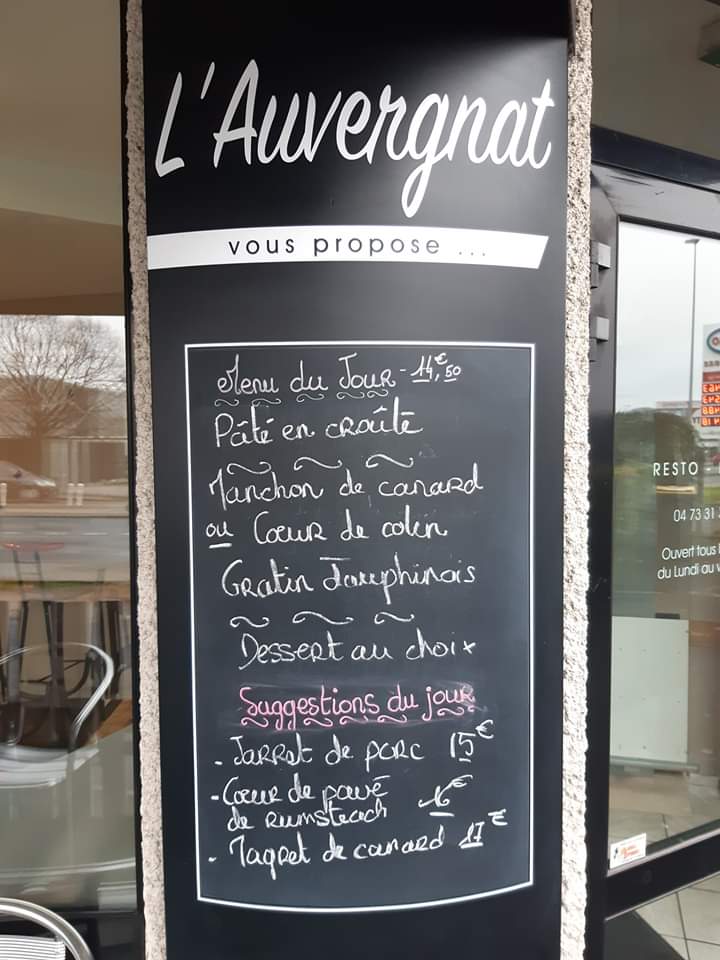 L'Auvergnat
vous propose ...
Menu du Jour - 14€,50
Pâté en croûte
Manchon de canard
ou Cœur de colin
Gratin Dauphinois
Dessert au choix
Suggestions du jour
- Jarret de porc 15€
- Cœur de pavé
de Rumsteach 16€
- Magret de canard 17€
RESTO
04 73 31
Ouvert tous l
du Lundi au v